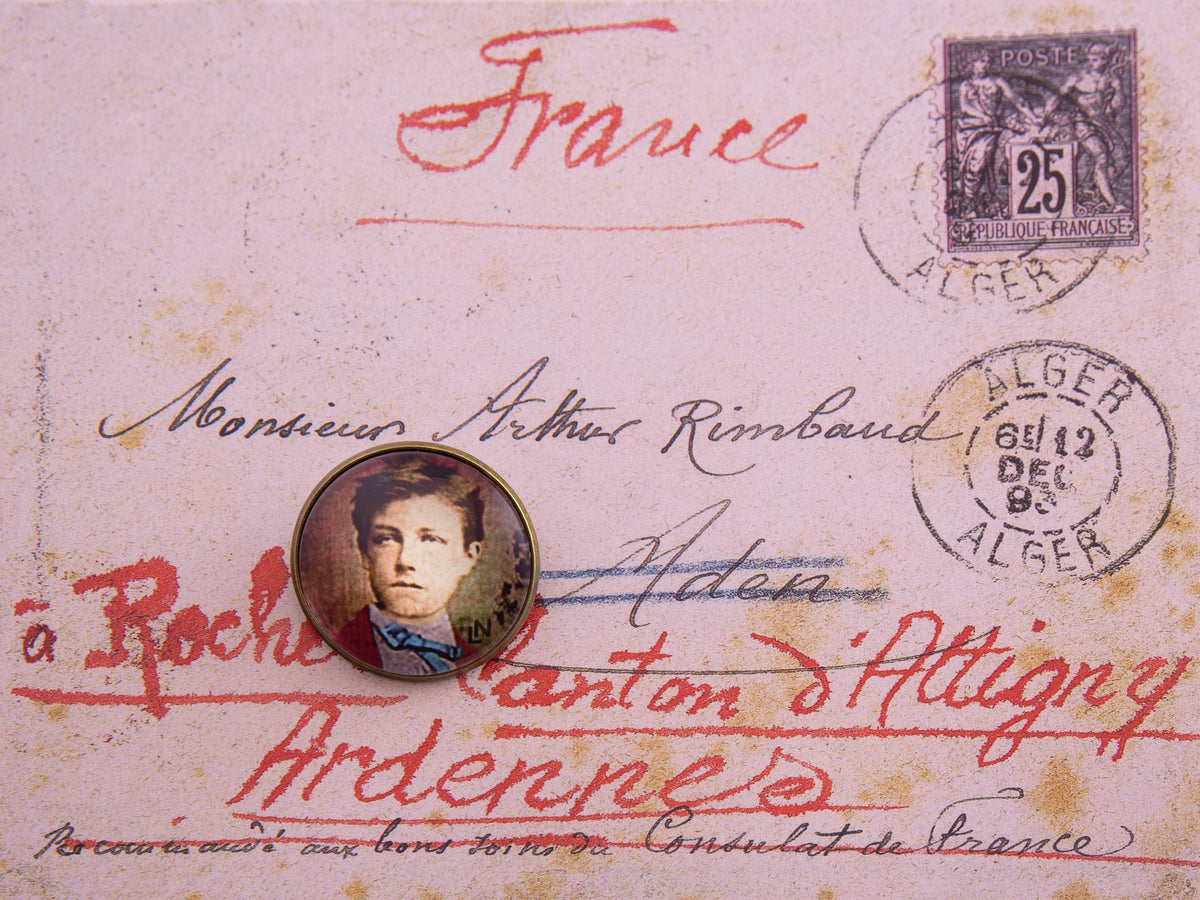 France
POSTE
25
RÉPUBLIQUE FRANÇAISE
ALGER
Monsieur Arthur Rimbaud
ALGER
6E/12
DEC
ALGER
Aden
LN
à Roche Canton d'Attigny
Ardennes
Recommandé aux bons soins du Consulat de France